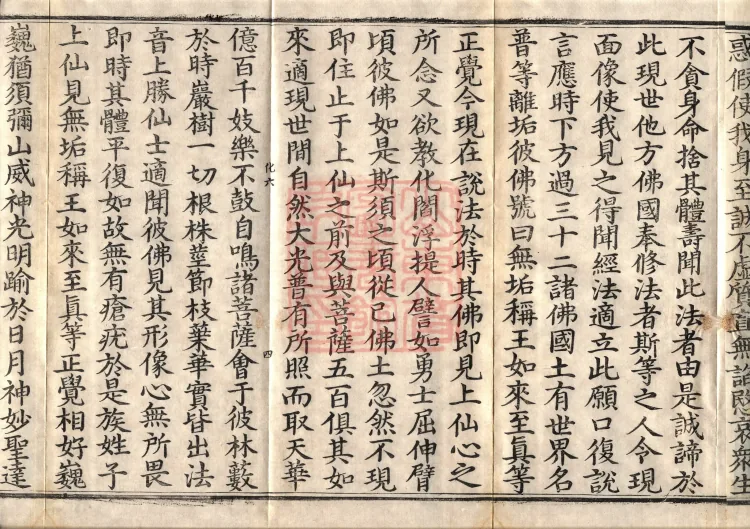 惑假使我身至誠不虛質直無諂愍哀衆生
不貪身命捨其體壽聞此法者由是誠諦於
此現世他方佛國奉修法者斯等之人令現
面像使我見之得聞經法適立此願口復說
言應時下方過三十二諸佛國土有世界名
普等離垢彼佛號曰無垢稱王如來至眞等
正覺今現在說法於時其佛即見上仙心之
所念又欲教化閻浮提人譬如勇士屈伸臂
頃彼佛如是斯須之頃從己佛土忽然不現
即住止于上仙之前及與菩薩五百俱其如
來適現世間自然大光普有所照而取天華
化六 四
億百千妓樂不鼓自鳴諸菩薩會于彼林藪
於時嚴樹一切根株莖節枝葉華實皆出法
音上勝仙士適聞彼佛見其形像心無所畏
即時其體平復如故無有瘡疣於是族姓子
上仙見無垢稱王如來至眞等正覺相好巍
巍猶須彌山威神光明踰於日月神妙聖達